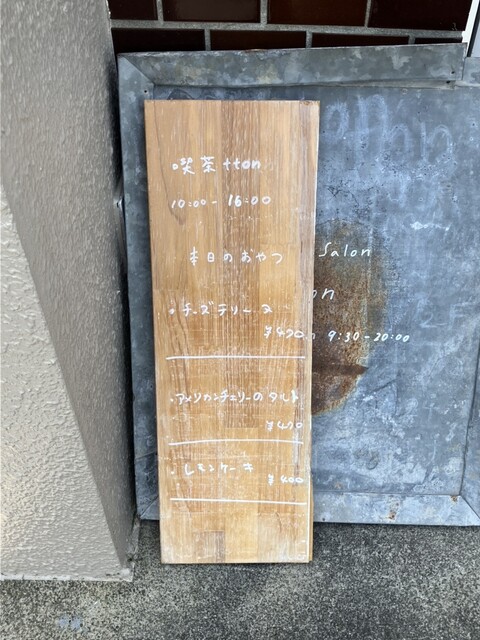 喫茶tton
10:00-16:00
本日のおやつ
・チーズテリーヌ
・アメリカンチェリーのタルト
¥470
・レモンケーキ
¥400
Salon
on
9:30-20:00